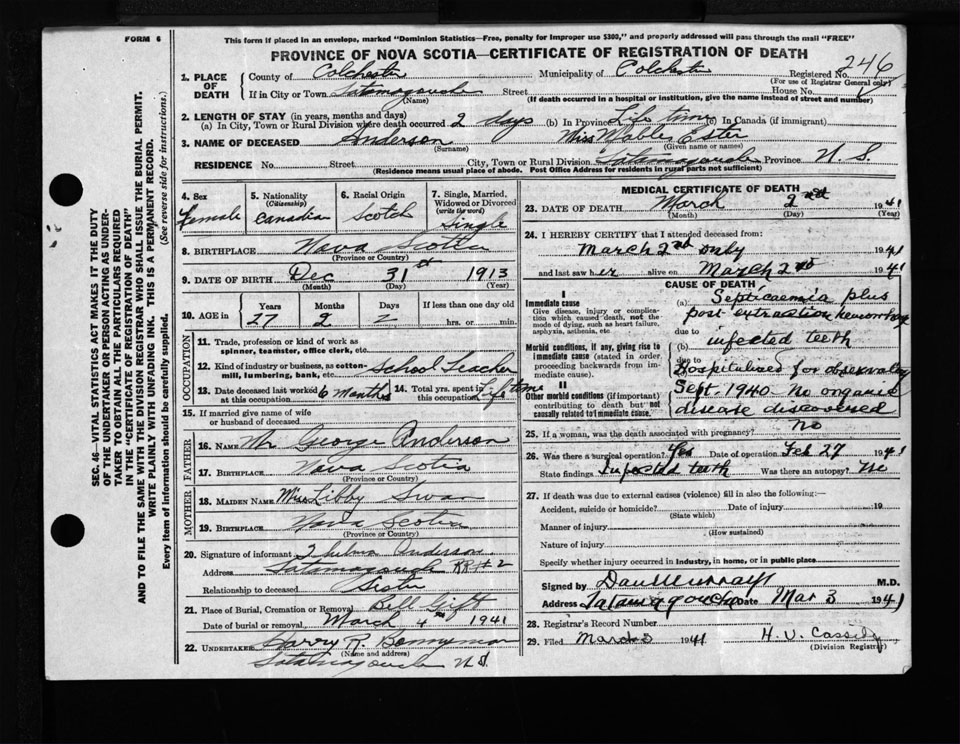 FORM 6
This form if placed in an envelope, marked "Dominion Statistics—Free, penalty for improper use $300," and properly addressed will pass through the mail "FREE"
PROVINCE OF NOVA SCOTIA—CERTIFICATE OF REGISTRATION OF DEATH
SEC. 46—VITAL STATISTICS ACT MAKES IT THE DUTY
OF THE UNDERTAKER OR PERSON ACTING AS UNDER-
TAKER TO OBTAIN ALL THE PARTICULARS REQUIRED
IN THE "CERTIFICATE OF REGISTRATION OF DEATH"
AND TO FILE THE SAME WITH THE DIVISION REGISTRAR WHO SHALL ISSUE THE BURIAL PERMIT.
WRITE PLAINLY WITH UNFADING INK. THIS IS A PERMANENT RECORD.
Every item of information should be carefully supplied. (See reverse side for instructions.)
1. PLACE OF DEATH County of Colchester Municipality of Colchester Registered No. 246
(For use of Registrar General only)
If in City or Town Tatamagouche Street House No.
(Name) (If death occurred in a hospital or institution, give the name instead of street and number)
2. LENGTH OF STAY (in years, months and days)
(a) In City, Town or Rural Division where death occurred 2 days (b) In Province Life time (c) In Canada (if immigrant)
3. NAME OF DECEASED Anderson Miss Mable Ester
(Surname) (Given name or names)
RESIDENCE No. Street City, Town or Rural Division Tatamagouche Province N. S.
(Residence means usual place of abode. Post Office Address for residents in rural parts not sufficient)
4. Sex Female
5. Nationality (Citizenship) Canadian
6. Racial Origin Scotch
7. Single, Married, Widowed or Divorced (write the word) Single
8. BIRTHPLACE Nova Scotia
(Province or Country)
9. DATE OF BIRTH Dec 31st 1913
(Month) (Day) (Year)
10. AGE in Years 27 Months 2 Days 2 If less than one day old hrs. or min.
OCCUPATION
11. Trade, profession or kind of work as spinner, teamster, office clerk, etc.
12. Kind of industry or business, as cotton-mill, lumbering, bank, etc. School Teacher
13. Date deceased last worked at this occupation 6 months 14. Total yrs. spent in this occupation Life time
15. If married give name of wife or husband of deceased
FATHER
16. NAME Mr George Anderson
17. BIRTHPLACE Nova Scotia
(Province or Country)
MOTHER
18. MAIDEN NAME Miss Libby Swan
19. BIRTHPLACE Nova Scotia
(Province or Country)
20. Signature of informant Thelma Anderson
Address Tatamagouche RR#2
Relationship to deceased Sister
21. Place of Burial, Cremation or Removal
Date of burial or removal March 4th 1941
22. UNDERTAKER Harry R. Bonnyman
(Name and address)
Tatamagouche N S.
MEDICAL CERTIFICATE OF DEATH
23. DATE OF DEATH March 2nd 1941
(Month) (Day) (Year)
24. I HEREBY CERTIFY that I attended deceased from:
March 2nd Only 1941
and last saw her alive on March 2nd 1941
CAUSE OF DEATH
I
Immediate cause
Give disease, injury or complication which caused death, not the mode of dying, such as heart failure, asphyxia, asthenia, etc.
(a) Septicaemia plus
post extraction hemorrhage
due to
Morbid conditions, if any, giving rise to immediate cause (stated in order proceeding backwards from immediate cause).
(b) infected teeth
due to
II
Other morbid conditions (if important) contributing to death but not causally related to immediate cause.
Hospitalized for observation
Sept. 1940. No organic
disease discovered
25. If a woman, was the death associated with pregnancy? No
26. Was there a surgical operation? Yes Date of operation Feb 27 1941
State findings Infected teeth Was there an autopsy? No
27. If death was due to external causes (violence) fill in also the following:—
Accident, suicide or homicide? Date of injury 19
(State which)
Manner of injury
(How sustained)
Nature of injury
Specify whether injury occurred in industry, in home, or in public place
Signed by Dan Murray M.D.
Address Tatamagouche Date Mar 3 1941
28. Registrar's Record Number
29. Filed March 3 1941 H. V. Cassidy
(Division Registrar)